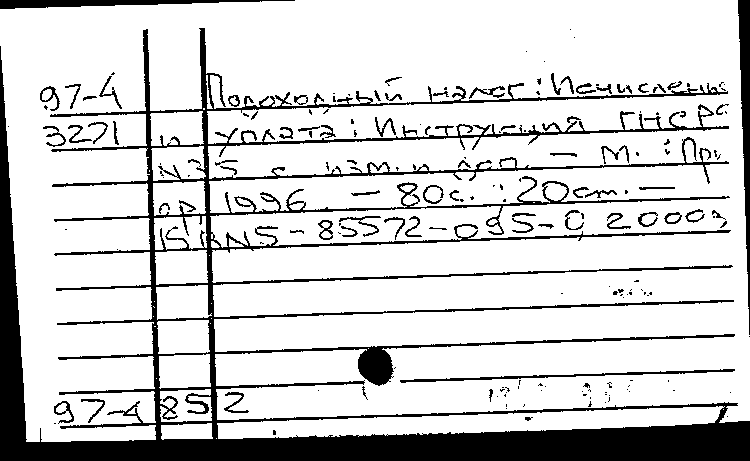 97-4 Подоходный налог: Исчисление
3271 и уплата: Инструкция ГНСРФ
N35 с изм. и доп. — М.: При
ор, 1996. — 80с.; 20см. —
ISBN5-85572-095-0, 2000э
97-4 852